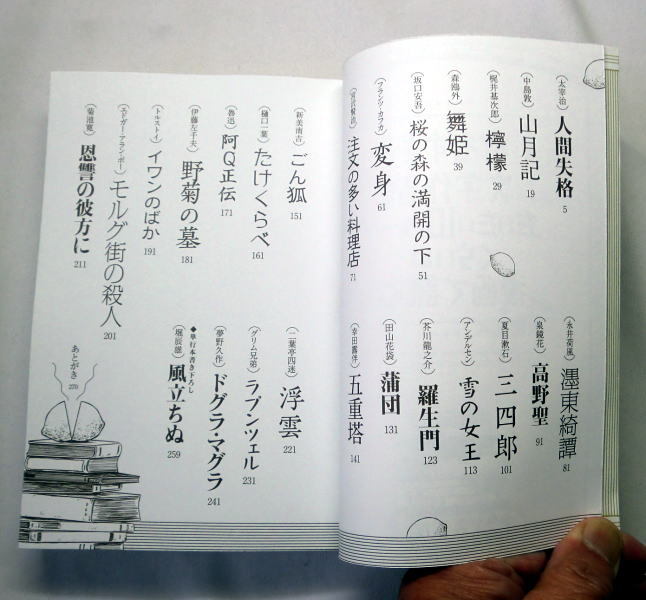 (太宰治)
人間失格
5
(中島敦)
山月記
19
(梶井基次郎)
檸檬
29
(森鷗外)
舞姫
39
(坂口安吾)
桜の森の満開の下
51
(フランツ・カフカ)
変身
61
(宮沢賢治)
注文の多い料理店
71
(永井荷風)
濹東綺譚
81
(泉鏡花)
高野聖
91
(夏目漱石)
三四郎
101
(アンデルセン)
雪の女王
113
(芥川龍之介)
羅生門
123
(田山花袋)
蒲団
131
(幸田露伴)
五重塔
141
(新美南吉)
ごん狐
151
(樋口一葉)
たけくらべ
161
(魯迅)
阿Q正伝
171
(伊藤左千夫)
野菊の墓
181
(トルストイ)
イワンのばか
191
(エドガー・アラン・ポー)
モルグ街の殺人
201
(菊池寛)
恩讐の彼方に
211
(二葉亭四迷)
浮雲
221
(グリム兄弟)
ラプンツェル
231
(夢野久作)
ドグラ・マグラ
241
◆単行本書き下ろし
(堀辰雄)
風立ちぬ
259
あとがき
270